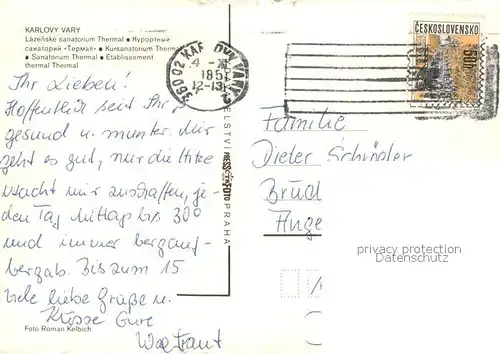 KARLOVY VARY
Lázeňské sanatorium Thermal ● Курортный
санаторий «Термал» ● Kursanatorium Thermal
● Sanatorium Thermal ● Etablissement
thermal Thermal
Ihr Lieben!
Hoffentlich seit Ihr
gesund u. munter. Mir
geht es gut, nur die Hitze
macht mir zuschaffen, je-
den Tag Mittag bis 30°
und immer bergauf-
bergab. Bis zum 15
viele liebe Grüße u.
Küsse Eure
Foto Roman Kelbich
PRESSFOTO PRAHA
360 02 KARLOVY VARY 2
12-13
ČESKOSLOVENSKO
Familie
Dieter
privacy protection
Datenschutz